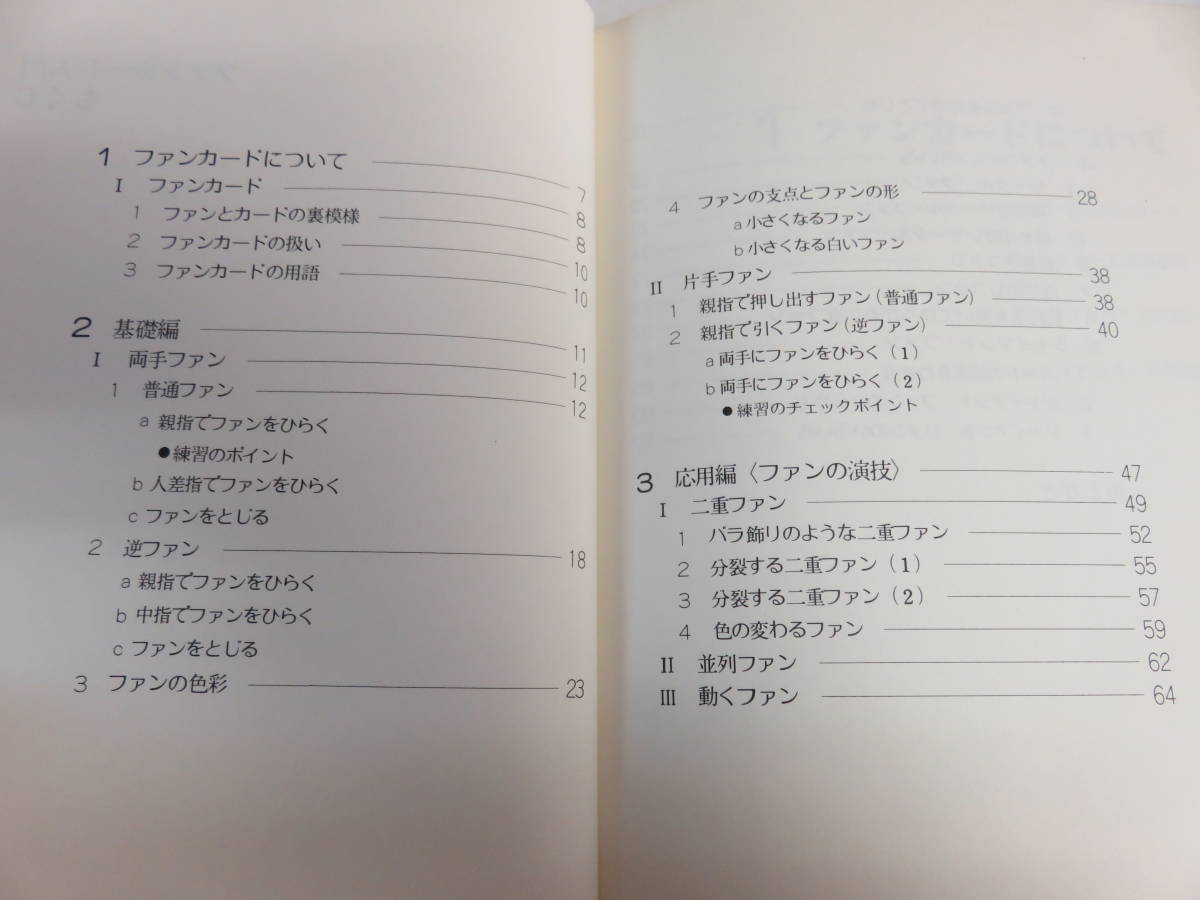 1 ファンカードについて 7
I ファンカード 8
1 ファンとカードの裏模様 8
2 ファンカードの扱い 10
3 ファンカードの用語 10
2 基礎編 11
I 両手ファン 12
1 普通ファン 12
a 親指でファンをひらく
●練習のポイント
b 人差指でファンをひらく
c ファンをとじる
2 逆ファン 18
a 親指でファンをひらく
b 中指でファンをひらく
c ファンをとじる
3 ファンの色彩 23
4 ファンの支点とファンの形 28
a 小さくなるファン
b 小さくなる白いファン
II 片手ファン 38
1 親指で押し出すファン(普通ファン) 38
2 親指で引くファン(逆ファン) 40
a 両手にファンをひらく(1)
b 両手にファンをひらく(2)
●練習のチェックポイント
3 応用編〈ファンの演技〉 47
I 二重ファン 49
1 バラ飾りのような二重ファン 52
2 分裂する二重ファン(1) 55
3 分裂する二重ファン(2) 57
4 色の変わるファン 59
II 並列ファン 62
III 動くファン 64